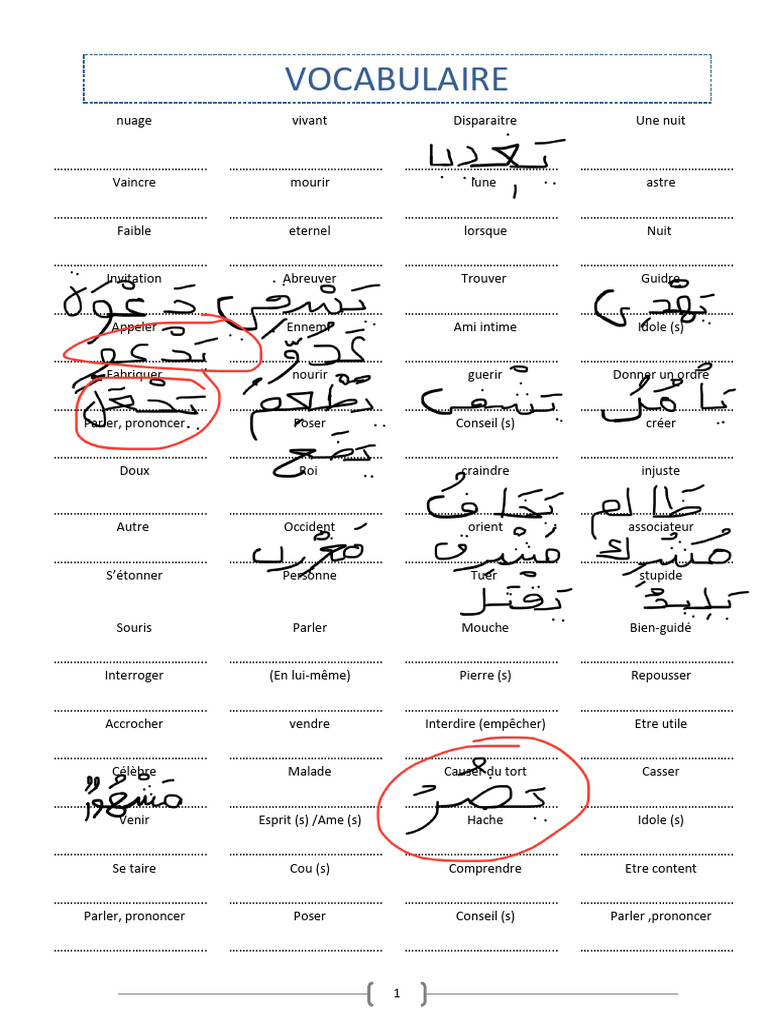 VOCABULAIRE
nuage vivant Disparaitre Une nuit
Vaincre mourir lune astre
Faible eternel lorsque Nuit
Invitation Abreuver Trouver Guidre
دَعْوَة يَسْقِي يَهْدِي
Appeler Ennemi Ami intime Idole (s)
يَدْعو عَدَوّ
Fabriquer nourir guerir Donner un ordre
يُطْعِمُ يَشْفي يَأْمُرُ
Parler, prononcer Poser Conseil (s) créer
يَضَع
Doux Roi craindre injuste
يَخَافُ ظَالِم
Autre Occident orient associateur
مَغْرِب مُشْرِق مُشْرِك
S’étonner Personne Tuer stupide
يَقْتُل بَلِيدٌ
Souris Parler Mouche Bien-guidé
Interroger (En lui-même) Pierre (s) Repousser
Accrocher vendre Interdire (empêcher) Etre utile
Célèbre Malade Causer du tort Casser
مَشْهُورٌ يَضُرُّ
Venir Esprit (s) /Ame (s) Hache Idole (s)
Se taire Cou (s) Comprendre Etre content
Parler, prononcer Poser Conseil (s) Parler ,prononcer
1